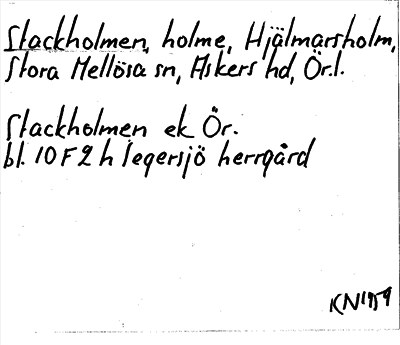 Stackholmen, holme, Hjälmarsholm,
Stora Mellösa sn, Askers hd, Ör.l.
Stackholmen ek Ör.
bl. 10 F 2 h Segersjö herrgård
KN 1959